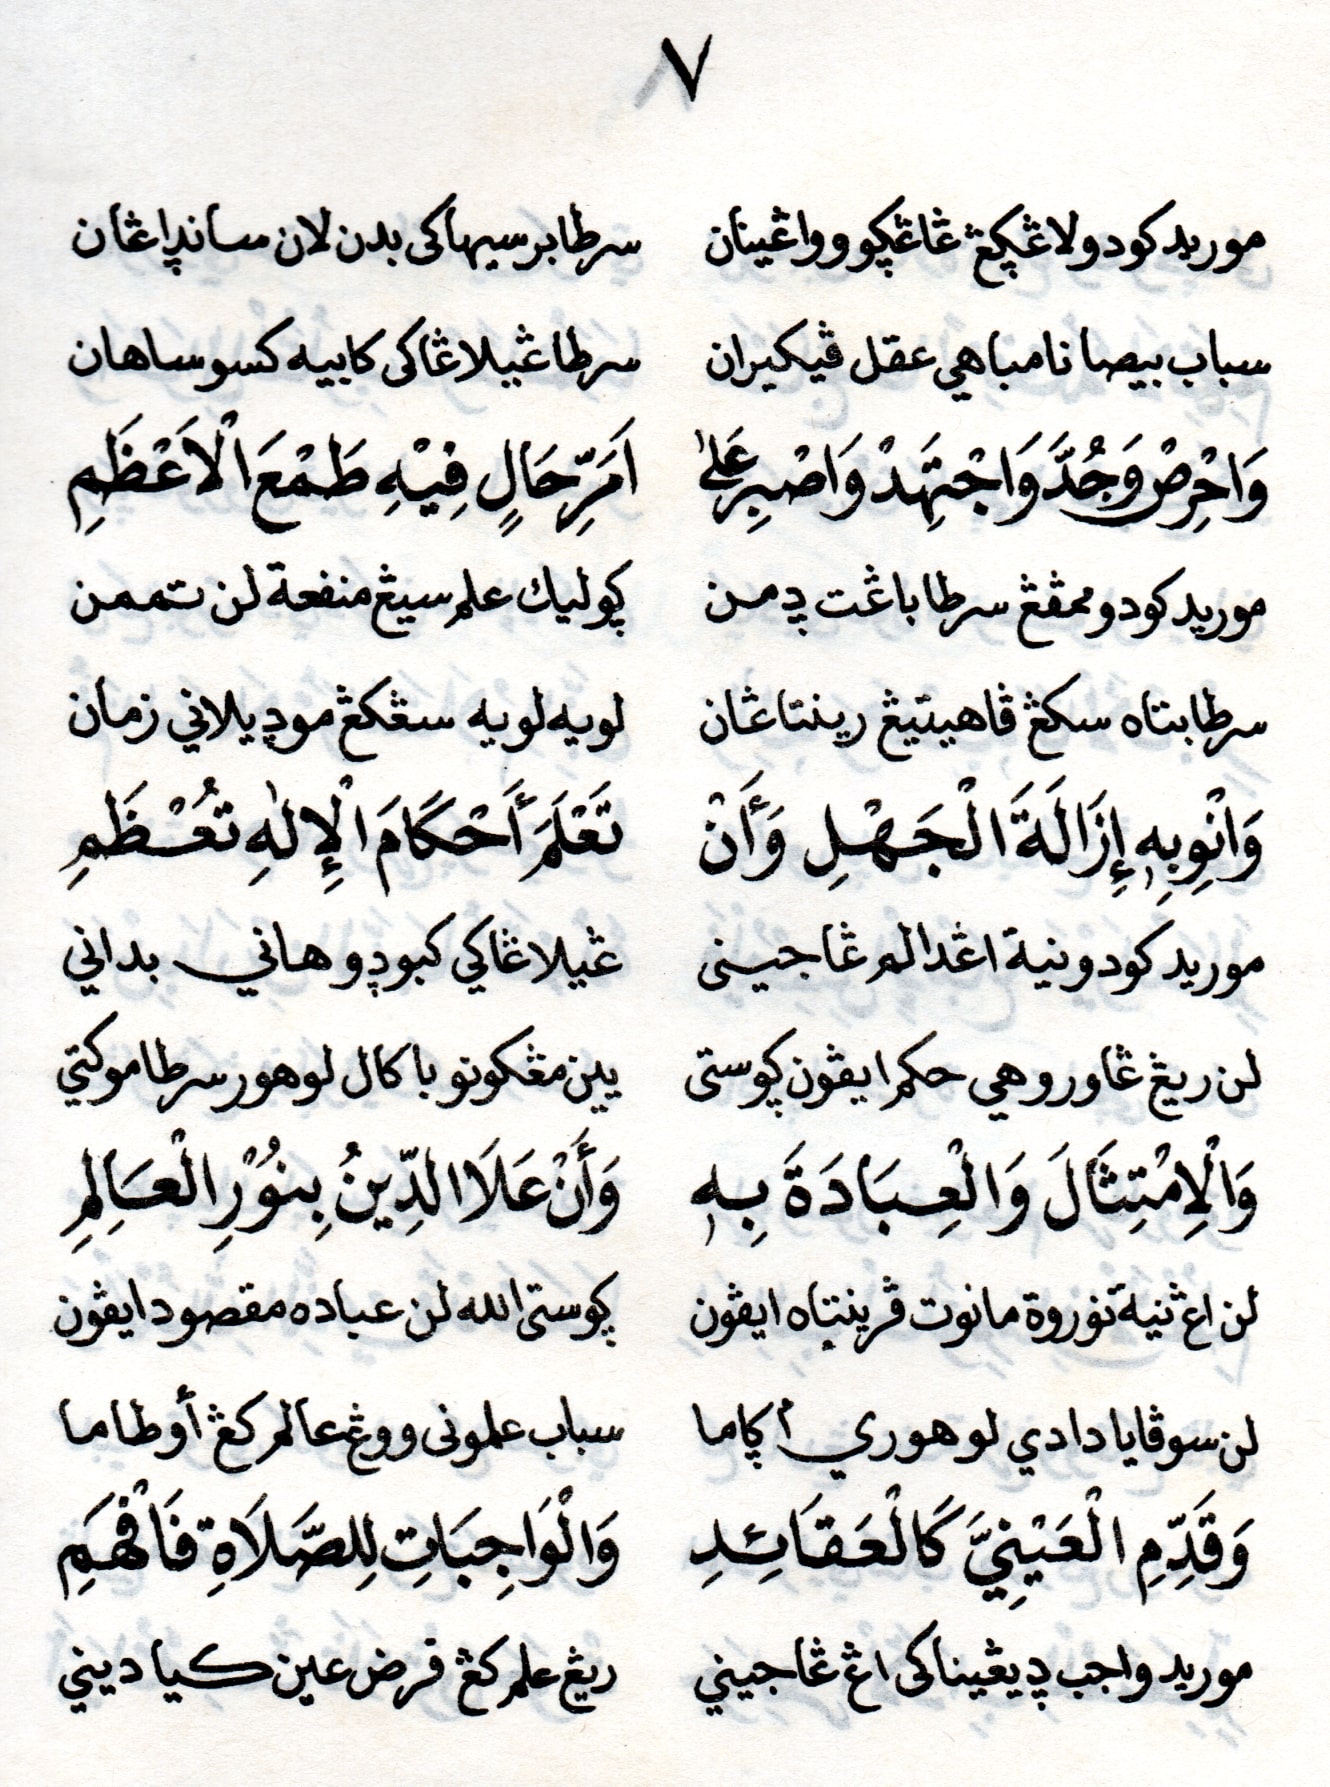 ٧
موريد كودو ولاڠچڠ ڠاڠچو وواڠينان سرطا برسيهاكى بدن لان ساندڠان
سباب بيصا نامباهي عقل ڤيكيران سرطا ڠيلاڠاكى كابيه كسوساهان
وَاحْرِصْ وَجُدَّ وَاجْتَهِدْ وَاصْبِرْ عَلىٰ اَمَرِّ حَالٍ فِيْهِ طَمْعَ الْاَعْظَمِ
موريد كودو ممڤڠ سرطا باڠت دٍمن چوليك علم سيڠ منفعة لن تممن
سرطا بتاه سكڠ ڤاهيتيڠ رينتاڠان لويه لويه سڠكڠ مودٍيلاني زمان
وَانْوِ بِهٖ إِزَالَةَ الْجَهْلِ وَأَنْ تَعْلَمَ أَحْكَامَ الْإِلٰهِ تُعْظَمِ
موريد كودو نية اڠدالم ڠاجينى ڠيلاڠاكي كبودٍوهاني بداني
لن ريڠ ڠاوروهي حكم ايڤون چوستى يين مڠكونو باكال لوهور سرطا موكتي
وَالْاِمْتِثَالَ وَالْعِبَادَةَ بِهٖ وَأَنْ عَلَا الدِّينُ بِنُوْرِ الْعَالِمِ
لن اڠ نية نوروة مانوت ڤرينتاه ايڤون چوستى الله لن عباده مقصود ايڤون
لن سوڤايا دادي لوهوري أچاما سباب علمونى ووڠ عالم كڠ أوطاما
وَقَدِّمِ الْعَيْنِيَّ كَالْعَقَائِدِ وَالْوَاجِبَاتِ لِلصَّلَاةِ فَافْهَمِ
موريد واجب دٍيڠيناكى اڠ ڠاجيني ريڠ علم كڠ فرض عين كيا ديني